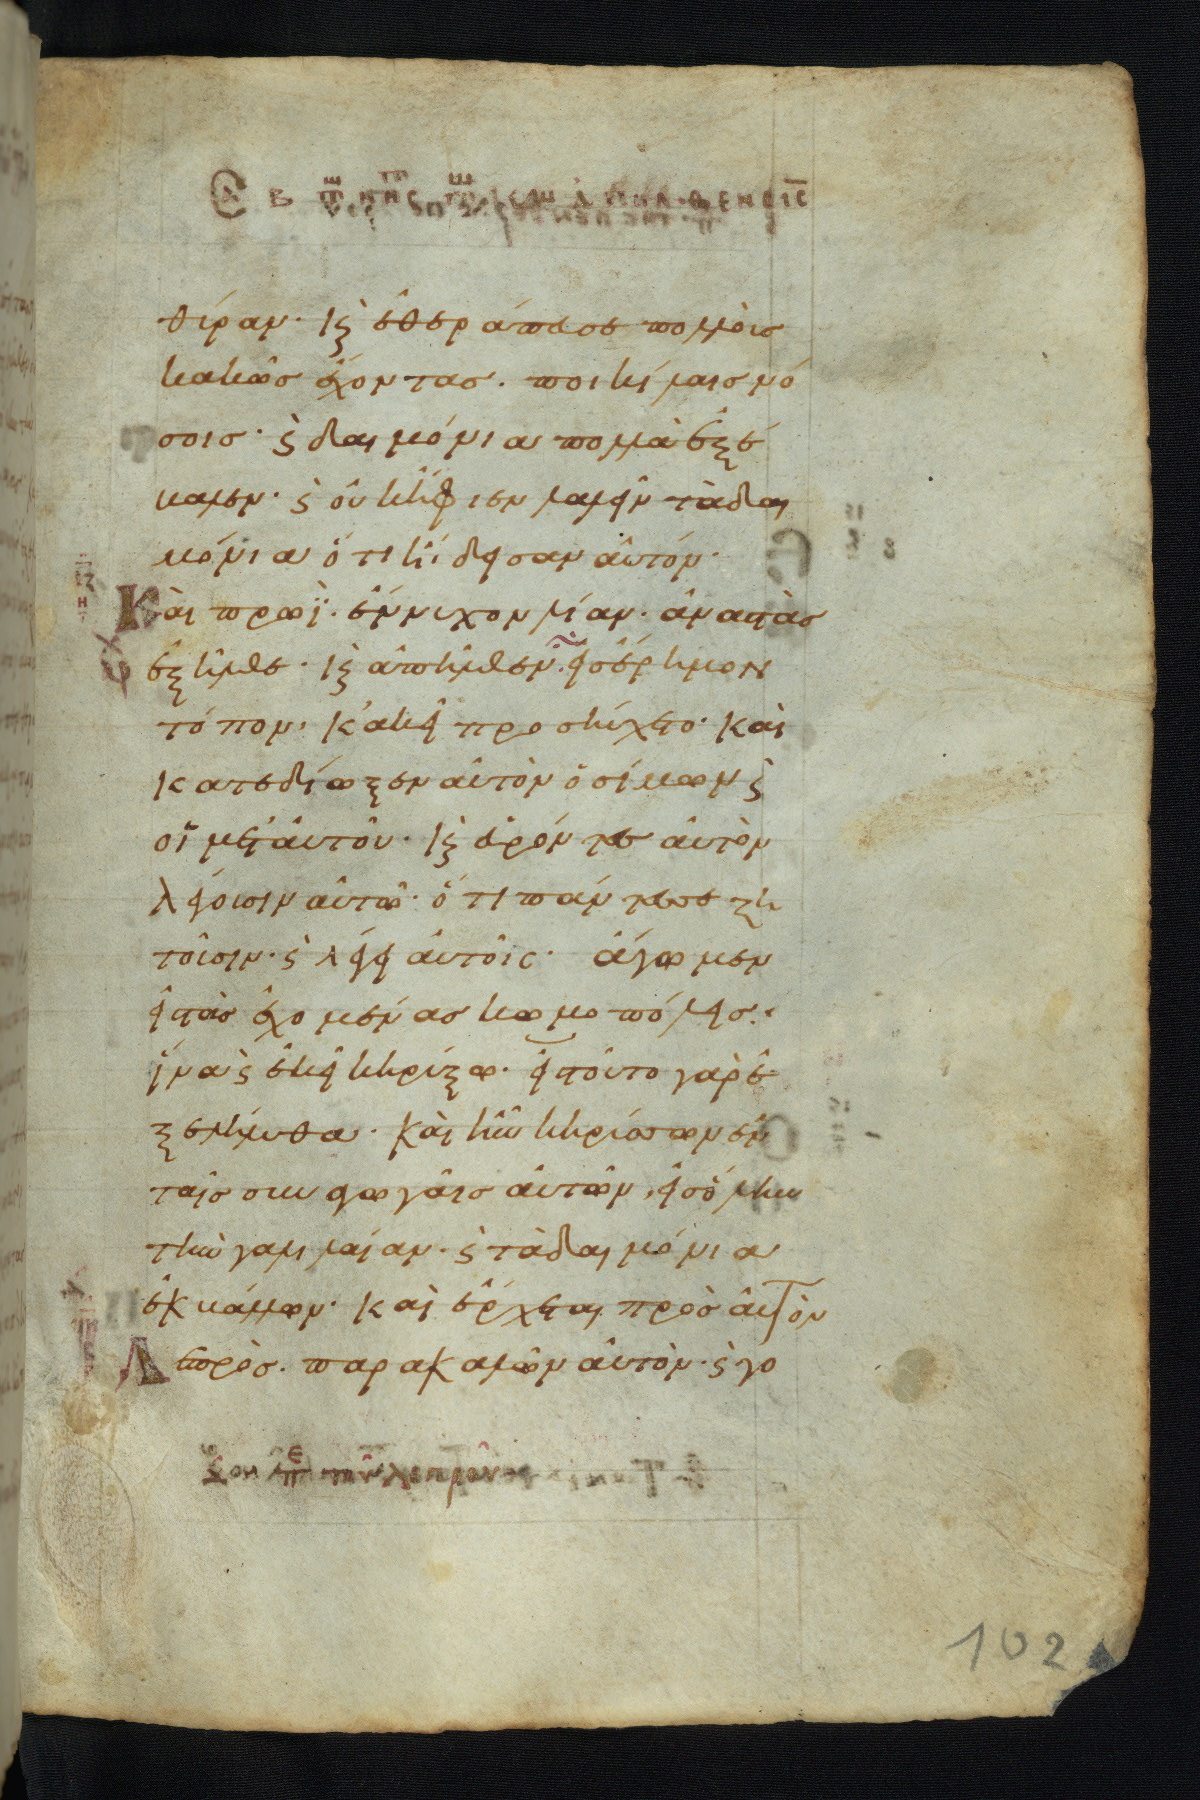 θύραν· κ(αὶ) ἐθεράπευσε πολλοὺς
κακῶς ἔχοντας· ποικίλαις νό
σοις· κ(αὶ) δαιμόνια πολλὰ ἐξέ
βαλεν· κ(αὶ) οὐκ ἤφιεν λαλεῖν τὰ δαι
μόνια ὅτι ᾔδεισαν αὐτόν·
Καὶ πρωῒ· ἔννυχον λίαν· ἀναστὰς
ἐξῆλθε· κ(αὶ) ἀπῆλθεν εἰς ἔρημον
τόπον· κἀκεῖ προσηύχετο· καὶ
κατεδίωξεν αὐτὸν ὁ σίμων κ(αὶ)
οἱ μετ' αὐτοῦ· κ(αὶ) εὑρόντες αὐτὸν
λέγουσιν αὐτῶ· ὅτι πάντες σε ζη
τοῦσιν· κ(αὶ) λέγει αὐτοῖς· ἄγωμεν
εἰς τὰς ἐχομένας κωμοπόλεις·
ἵνα κ(αὶ) ἐκεῖ κηρύξω· εἰς τοῦτο γὰρ ἐ
ξελήλυθα· καὶ ἦν κηρύσσων ἐν
ταῖς συναγωγαῖς αὐτῶν, εἰς ὅλην
τὴν γαλιλαίαν· κ(αὶ) τὰ δαιμόνια
ἐκβάλλων· καὶ ἔρχεται πρὸς αὐτὸν
Λεπρὸς· παρακαλῶν αὐτὸν· κ(αὶ) γο
102